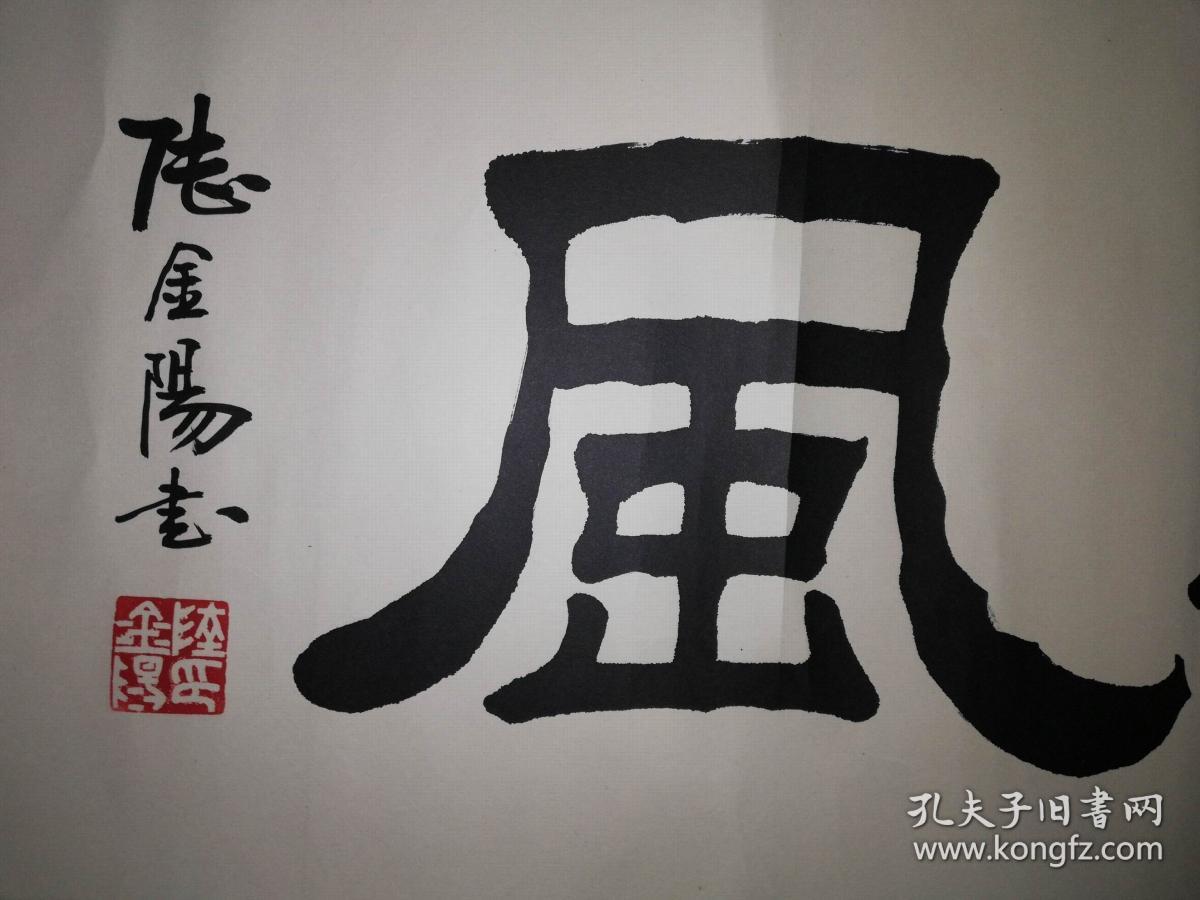 風
陸金陽書
陸印
金陽
孔夫子旧書网
www.kongfz.com